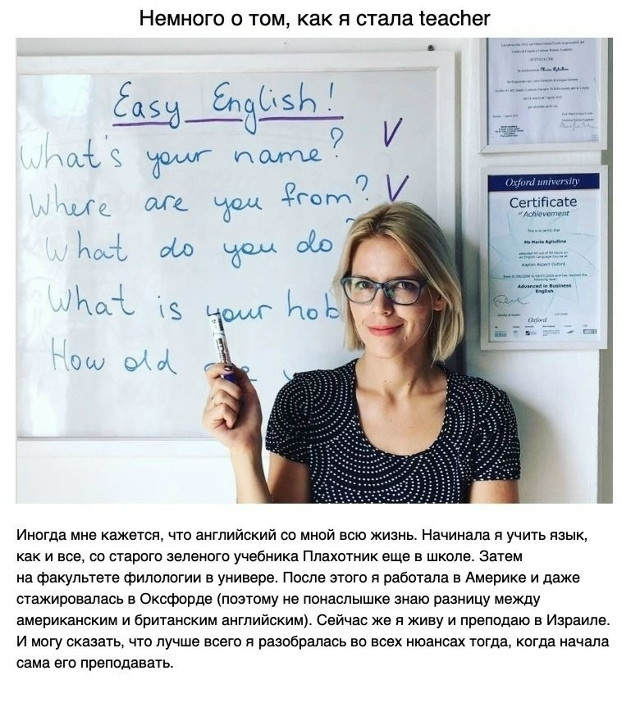 Немного о том, как я стала teacher
Easy English!
What's your name? V
Where are you from? V
What do you do ?
What is your hob
How old
Oxford university
Certificate
of Achievement
This is to certify that
Advanced in Business
English
Oxford
Иногда мне кажется, что английский со мной всю жизнь. Начинала я учить язык,
как и все, со старого зеленого учебника Плахотник еще в школе. Затем
на факультете филологии в универе. После этого я работала в Америке и даже
стажировалась в Оксфорде (поэтому не понаслышке знаю разницу между
американским и британским английским). Сейчас же я живу и преподаю в Израиле.
И могу сказать, что лучше всего я разобралась во всех нюансах тогда, когда начала
сама его преподавать.